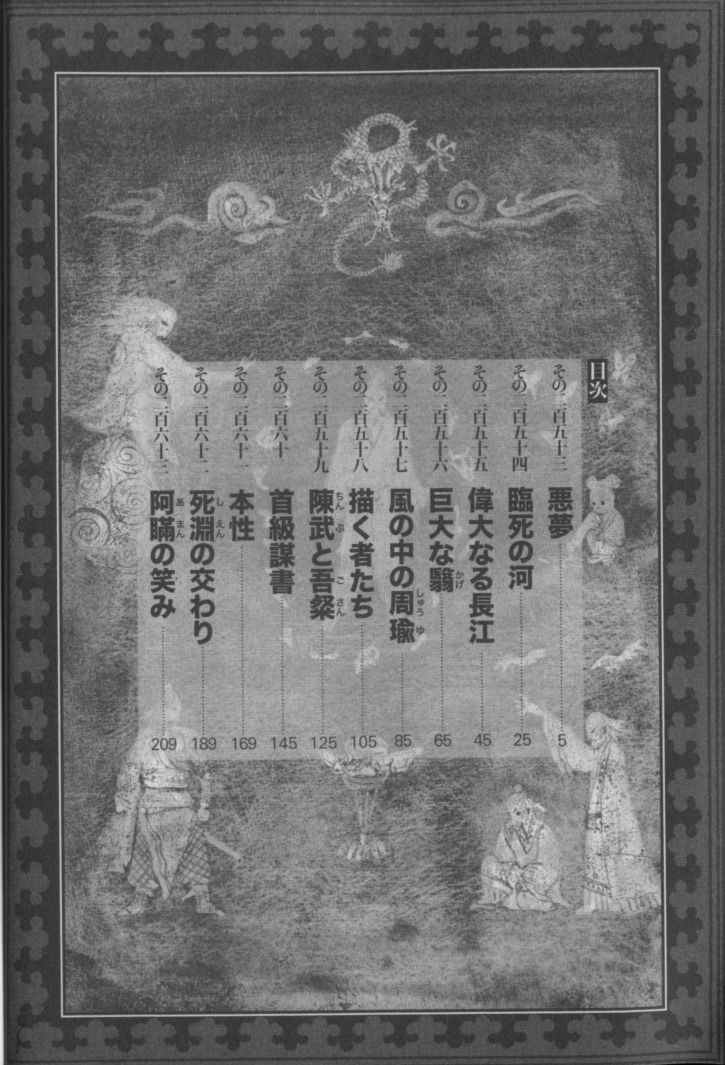 目次
その二百五十三 悪夢 5
その二百五十四 臨死の河 25
その二百五十五 偉大なる長江 45
その二百五十六 巨大な翳 65
かげ
その二百五十七 風の中の周瑜 85
しゅう ゆ
その二百五十八 描く者たち 105
その二百五十九 陳武と吾粲 125
ちん ぶ ご さん
その二百六十 首級謀書 145
その二百六十一 本性 169
その二百六十二 死淵の交わり 189
し えん
その二百六十三 阿瞞の笑み 209
あ まん